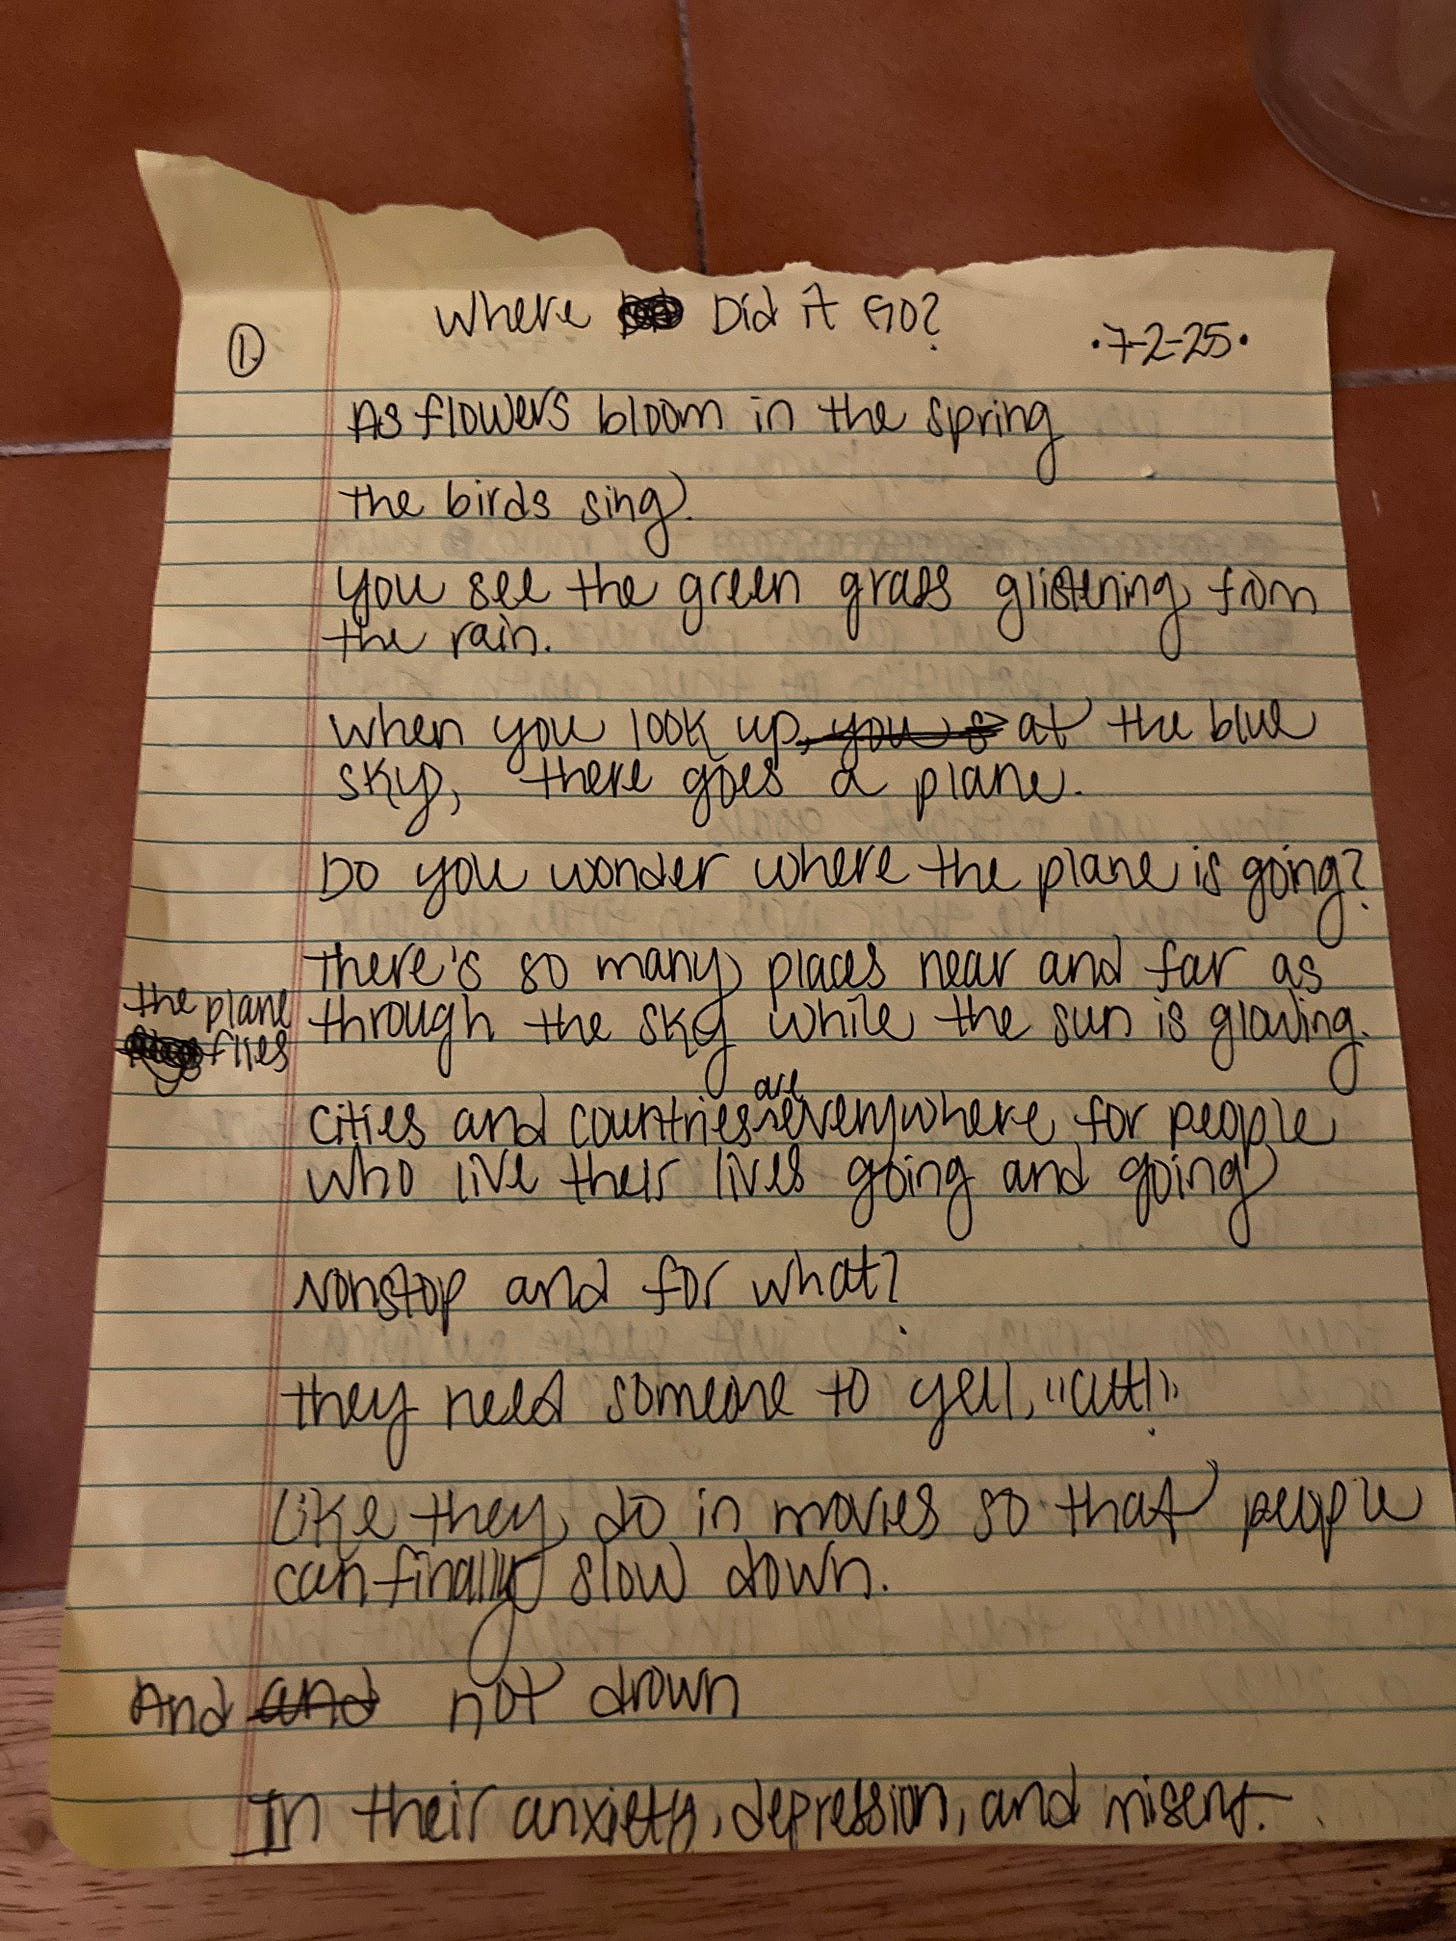 Where Did it Go?
1.
·7-2-25·
As flowers bloom in the spring
the birds sing.
You see the green grass glistening from
the rain.
When you look up, you s at the blue
sky, there goes a plane.
Do you wonder where the plane is going?
There's so many places near and far as
the plane flies through the sky while the sun is glowing.
Cities and countries are everywhere for people
who live their lives going and going
Nonstop and for what?
They need someone to yell, "Cut!"
Like they do in movies so that people
can finally slow down.
And and not drown
In their anxiety, depression, and misery.